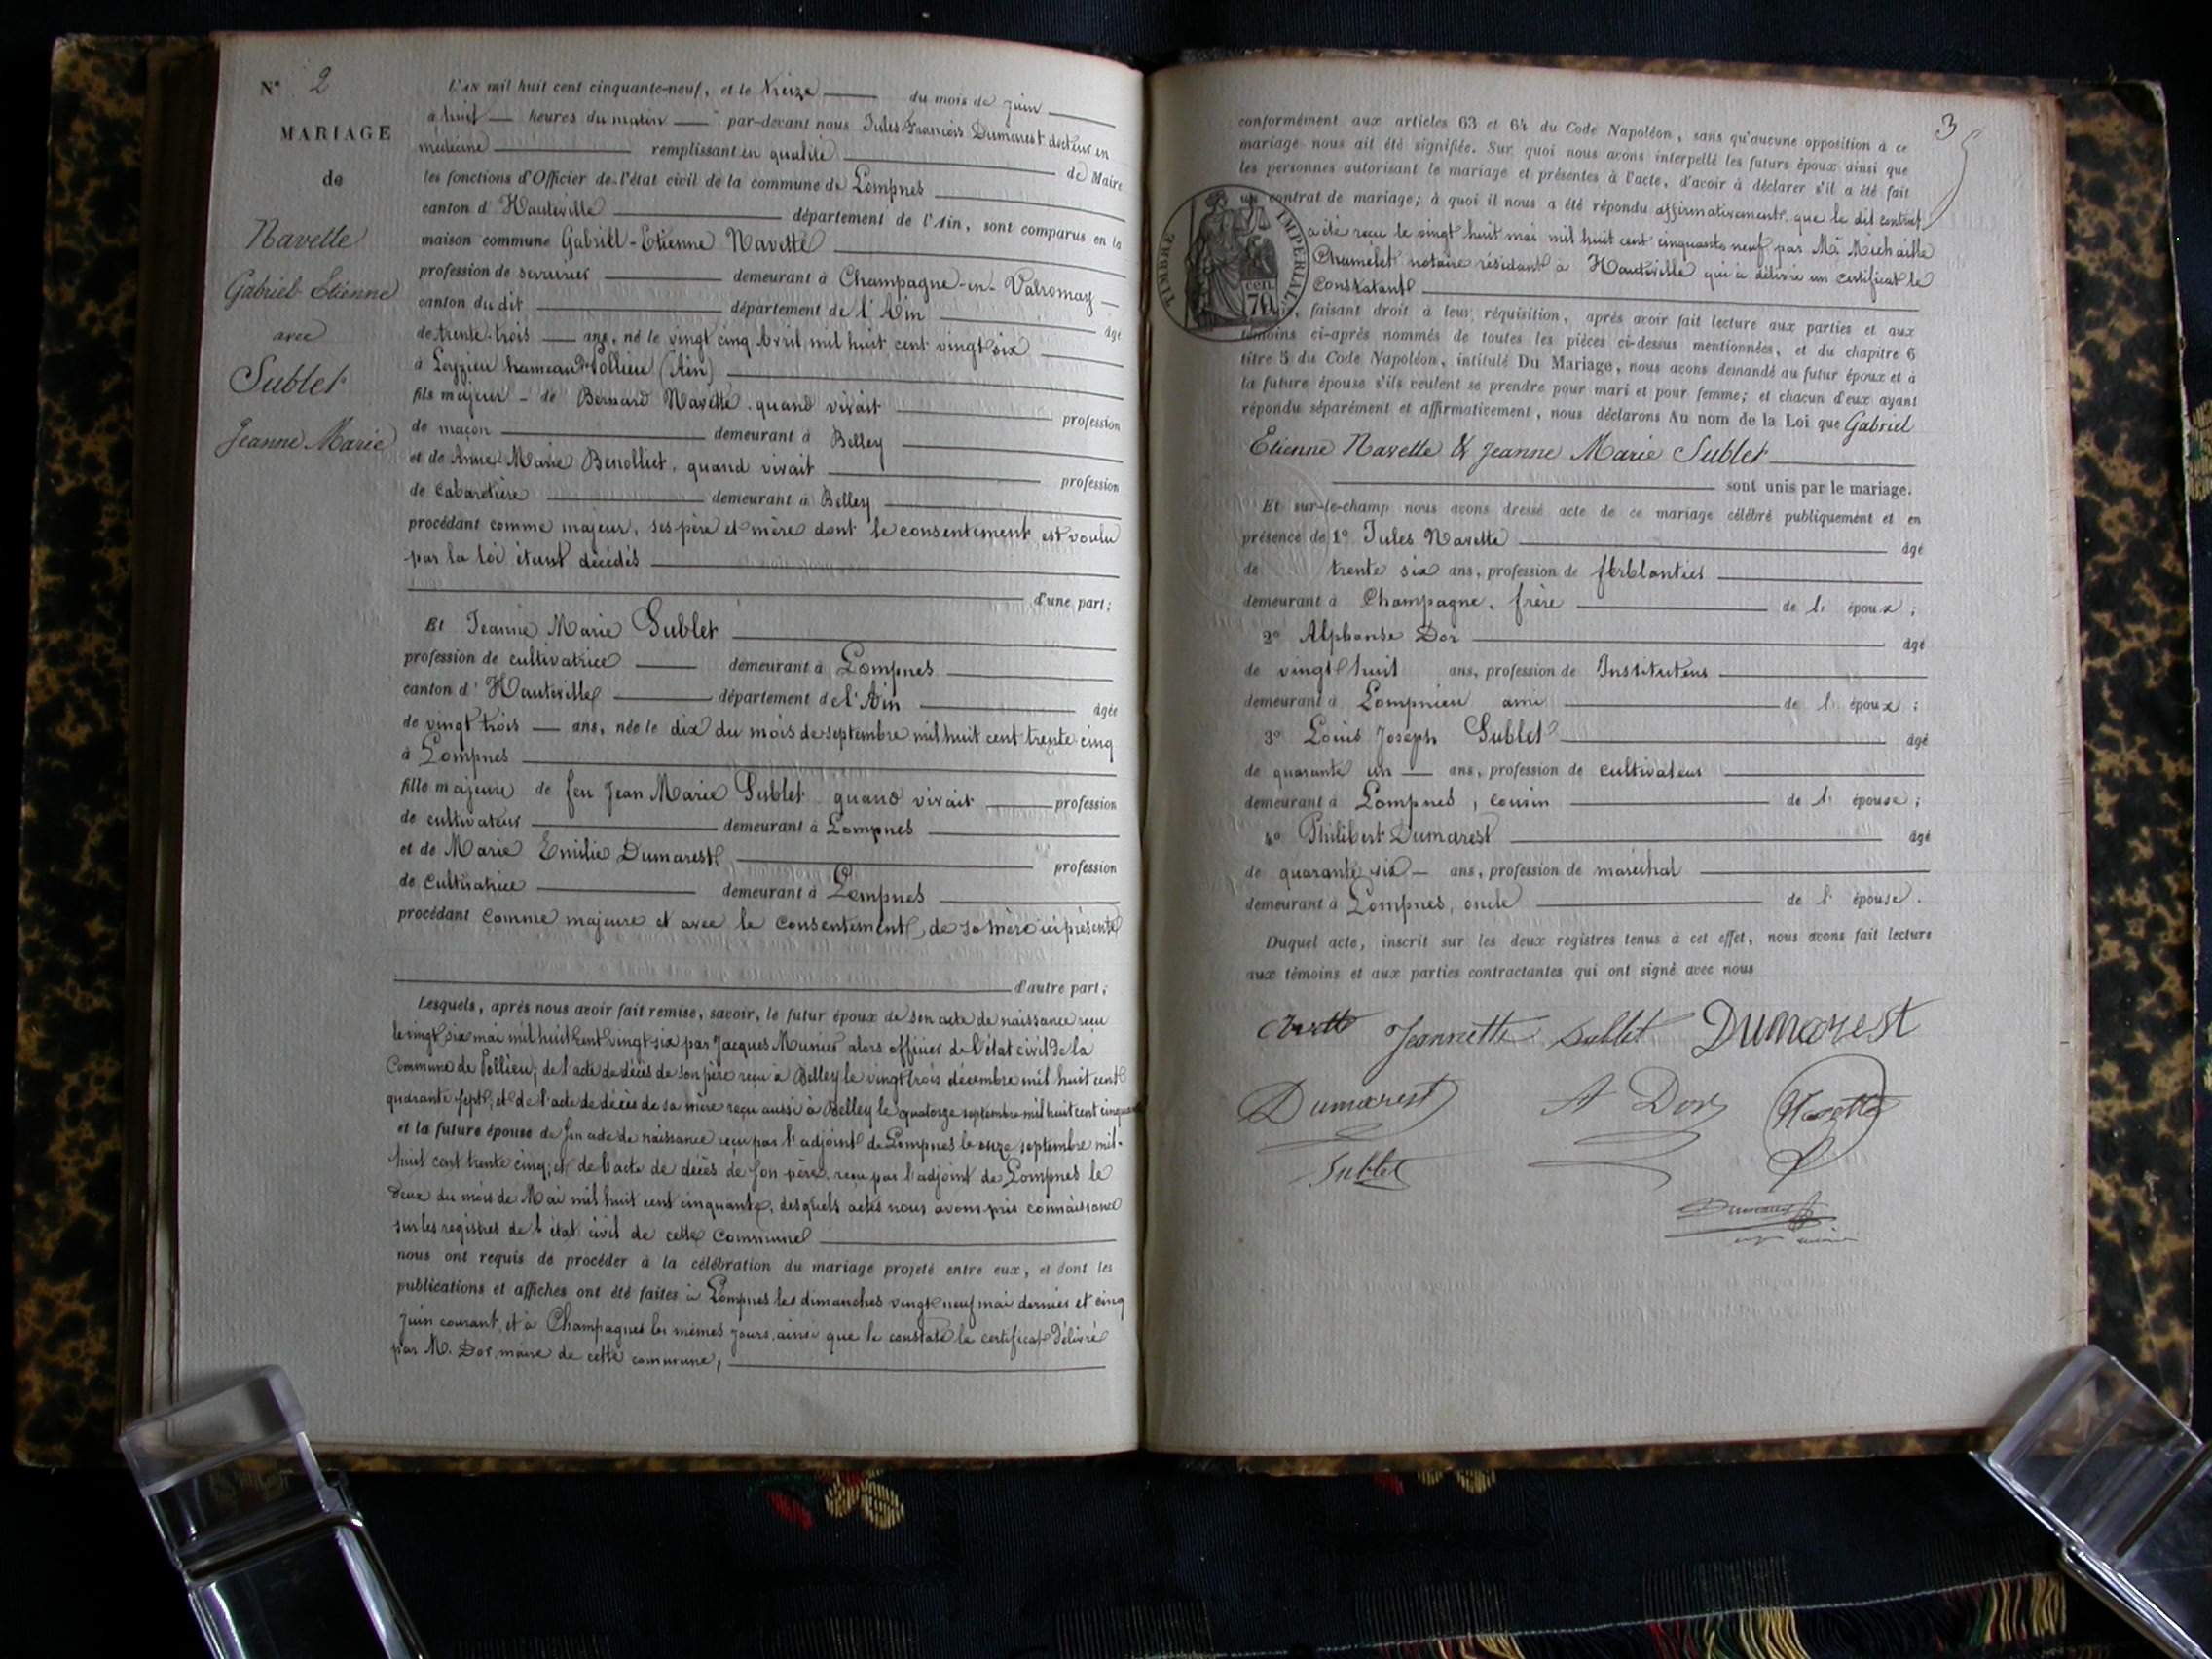 N° 2
MARIAGE
de
Navette
Gabriel Etienne
avec
Sublet
Jeanne Marie
L'AN mil huit cent cinquante-neuf, et le treize du mois de juin
à huit heures du matin par-devant nous Jules François Dumarest docteur en
médecine remplissant en qualité de Maire
les fonctions d'Officier de l'état civil de la commune de Lompnes
canton d'Hauteville département de l'Ain, sont comparus en la
maison commune Gabriel-Etienne Navette
profession de serrurier demeurant à Champagne-en-Valromay
canton du dit département de l'Ain âgé
de trente-trois ans, né le vingt cinq Avril mil huit cent vingt six
à Leyzieu hameau de Pollieu (Ain)
fils majeur de Bernard Navette quand vivait profession
de maçon demeurant à Belley
et de Anne-Marie Benolliet, quand vivait profession
de cabaretière demeurant à Belley
procédant comme majeur, ses père et mère dont le consentement est voulu
par la loi étant décédés
d'une part;
Et Jeanne Marie Sublet
profession de cultivatrice demeurant à Lompnes
canton d'Hauteville département de l'Ain âgée
de vingt trois ans, née le dix du mois de septembre mil huit cent trente cinq
à Lompnes
fille majeure de feu Jean Marie Sublet quand vivait profession
de cultivateur demeurant à Lompnes
et de Marie Emilie Dumarest profession
de cultivatrice demeurant à Lompnes
procédant comme majeure et avec le consentement, de sa mère ici présente
d'autre part;
Lesquels, après nous avoir fait remise, savoir, le futur époux de son acte de naissance reçu
le vingt six mai mil huit cent vingt-six par Jacques Munier alors officier de l'état civil de la
Commune de Pollieu; de l'acte de décès de son père reçu à Belley le vingt trois décembre mil huit cent
quarante sept; et de l'acte de décès de sa mère reçu aussi à Belley le quatorze septembre mil huit cent
et la future épouse de son acte de naissance reçu par l'adjoint de Lompnes le onze septembre mil-
huit cent trente cinq; et de l'acte de décès de son père, reçu par l'adjoint de Lompnes le
deux du mois de Mai mil huit cent cinquante, desquels actes nous avons pris connaissance
sur les registres de l'état civil de cette Commune
nous ont requis de procéder à la célébration du mariage projeté entre eux, et dont les
publications et affiches ont été faites à Lompnes les dimanches vingt-neuf mai dernier et cinq
juin courant, et à Champagne les mêmes jours, ainsi que le constate le certificat délivré
par M. Dor, maire de cette commune,
3
conformément aux articles 63 et 64 du Code Napoléon, sans qu'aucune opposition à ce
mariage nous ait été signifiée. Sur quoi nous avons interpellé les futurs époux ainsi que
les personnes autorisant le mariage et présentes à l'acte, d'avoir à déclarer s'il a été fait
un contrat de mariage; à quoi il nous a été répondu affirmativement que le dit contrat
a été reçu le vingt huit mai mil huit cent cinquante neuf par Me
Chamelet notaire résidant à Hauteville qui a délivré un certificat le
constatant
TIMBRE IMPERIAL
cen. 70
faisant droit à leur réquisition, après avoir fait lecture aux parties et aux
témoins ci-après nommés de toutes les pièces ci-dessus mentionnées, et du chapitre 6
titre 5 du Code Napoléon, intitulé Du Mariage, nous avons demandé au futur époux et à
la future épouse s'ils veulent se prendre pour mari et pour femme; et chacun d'eux ayant
répondu séparément et affirmativement, nous déclarons Au nom de la Loi que Gabriel
Etienne Navette & Jeanne Marie Sublet
sont unis par le mariage.
Et sur-le-champ nous avons dressé acte de ce mariage célébré publiquement et en
présence de 1° Jules Navette âgé
de trente six ans, profession de ferblantier
demeurant à Champagne, frère de l'époux;
2° Alphonse Dor âgé
de vingt huit ans, profession de Instituteur
demeurant à Lompnieu ami de l'époux;
3° Louis Joseph Sublet âgé
de quarante un ans, profession de cultivateur
demeurant à Lompnes, cousin de l'épouse;
4° Philibert Dumarest âgé
de quarante six ans, profession de maréchal
demeurant à Lompnes, oncle de l'épouse.
Duquel acte, inscrit sur les deux registres tenus à cet effet, nous avons fait lecture
aux témoins et aux parties contractantes qui ont signé avec nous
Navette Jeannette Sublet Dumarest
Dumarest A Dor Navette
Sublet
Dumarest